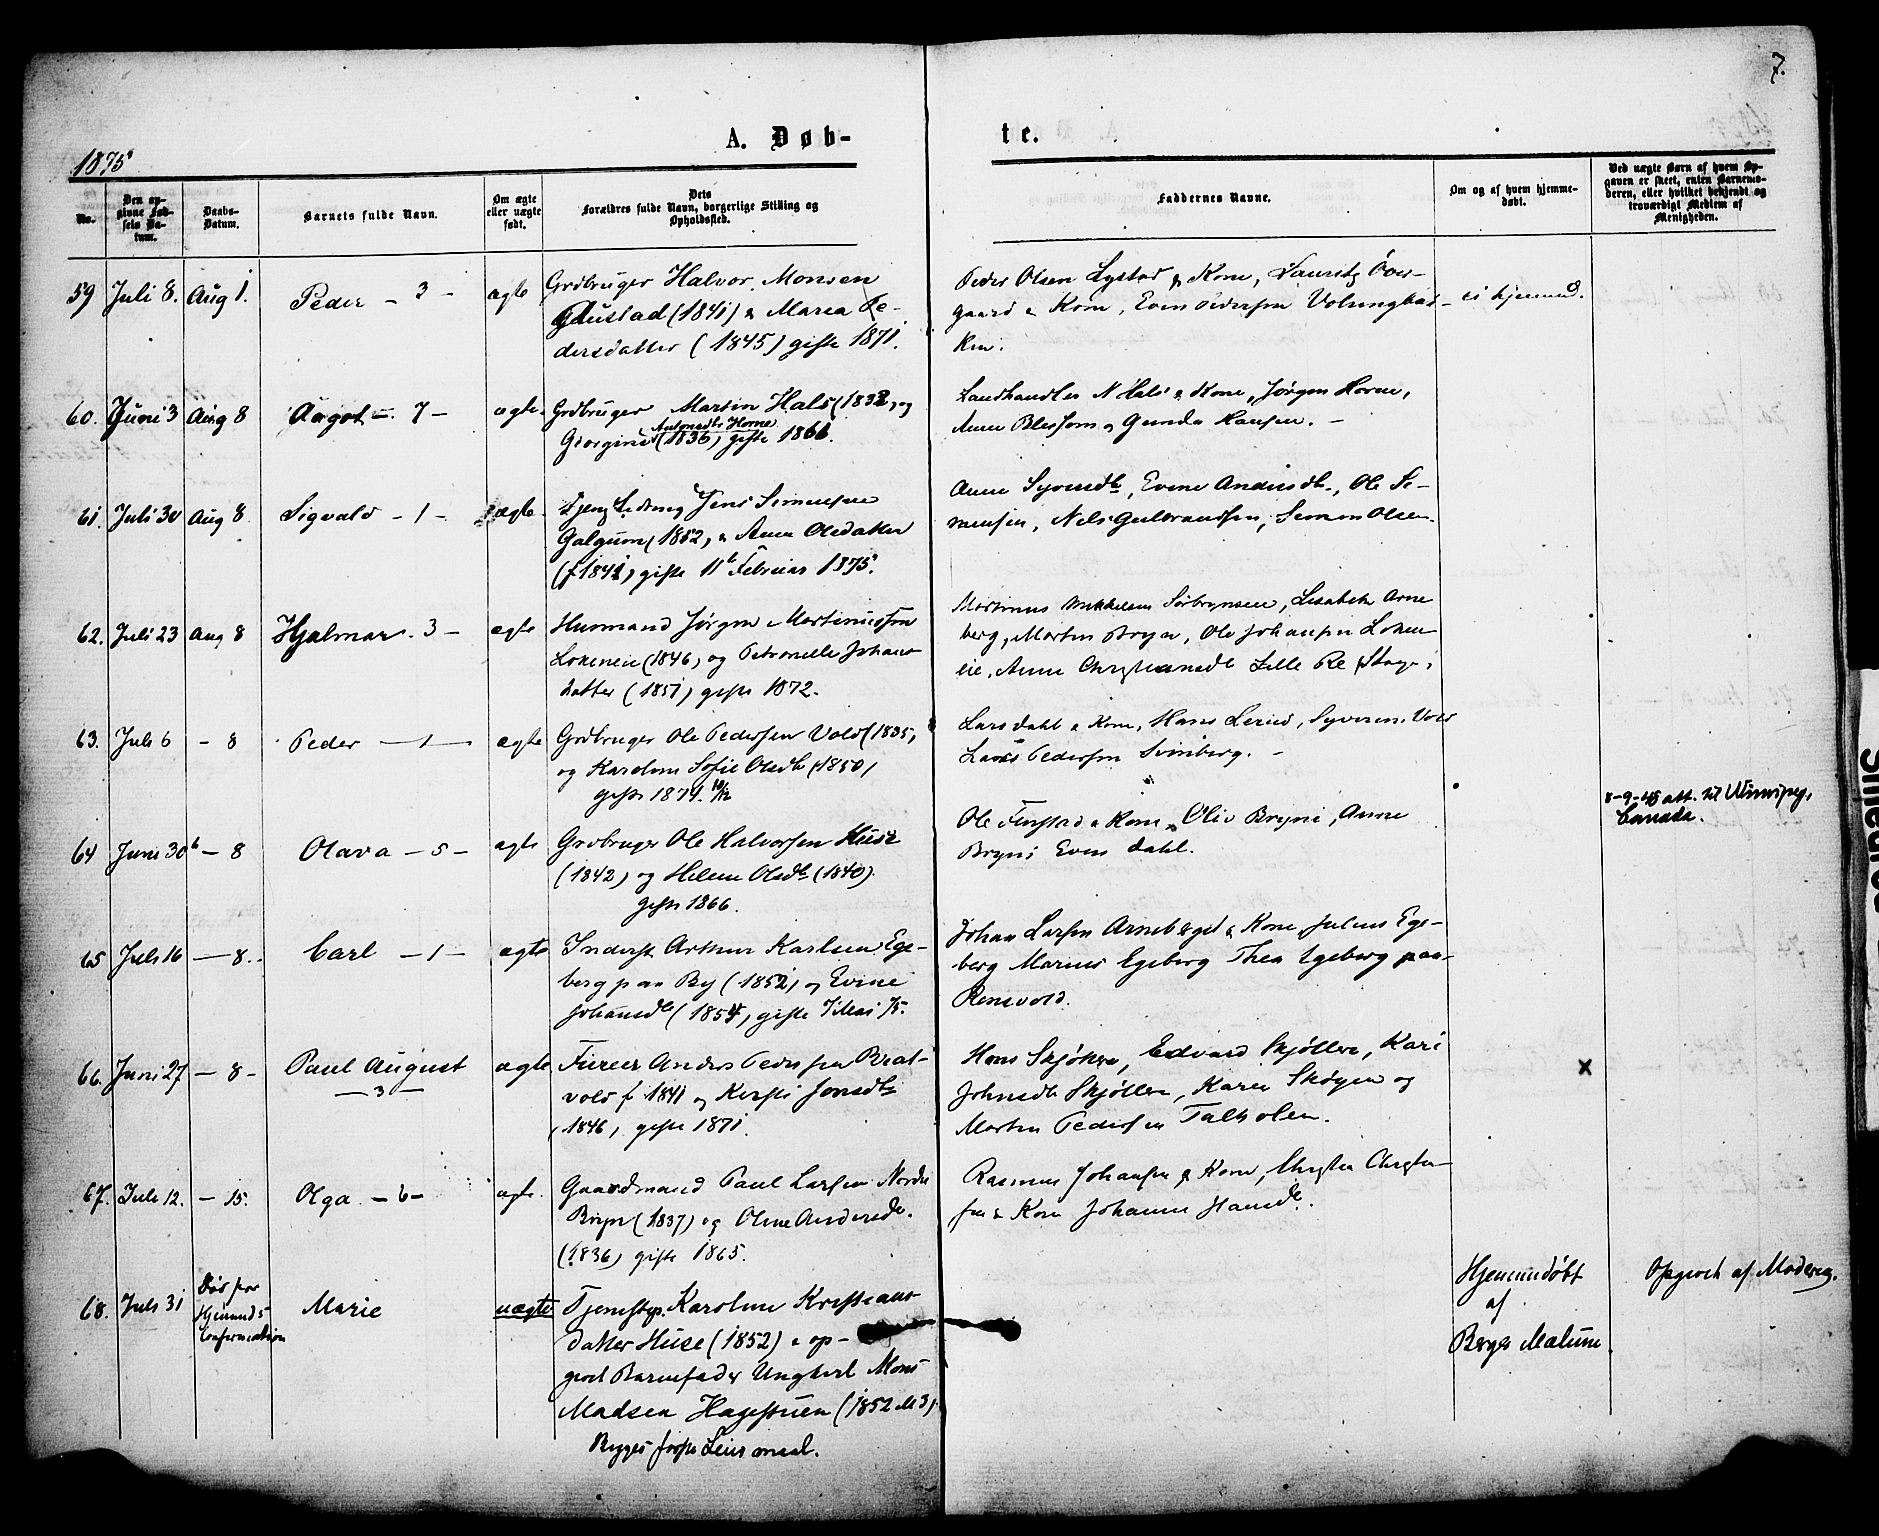 7.
A. Døb-
te.
1875
No.
Den op-
givne Fød-
sels Da-
tum.
Daabs-
Datum.
Barnets fulde Navn.
Om ægte
eller uægte
født.
Dets
Forældres fulde Navn, borgerlige Stilling og
Opholdssted.
Faddernes Navne.
Om og af hvem hjemme-
døbt.
Ved uægte Børn af hvem Op-
gaven er skeet, enten Barnemo-
deren, eller hvilket bekjendt og
troværdigt Medlem af
Menigheden.
59 Juli 8. Aug 1. Peder - 3 - ægte
Grdbruger Halvor Monsen
Gaustad (1841) & Marea Pe-
dersdatter (1845) gifte 1871.
Peder Olsen Lystad & Kone, Lauritz Över-
gaard & Kone, Even Pedersen Volungbak-
ken.
ei hjemmed.
60. Juni 3 Aug 8 Aagot - 7 - ægte
Grdbruger Martin Hals (1832) og
Giorgine Horne (1836) gifte 1861.
Landhandler N Hals & Kone, Jørgen Horne,
Anne Blessom, Gunda Hansen. -
61. Juli 30 Aug 8. Sigvald - 1 - ægte
Jens Simensen
Galguon (1852) & Anne Olsdatter
(f 1841) gifte 11te Februar 1875.
Anne Syversdtr, Evine Andersdtr, Ole Si-
mensen, Nels Gulbrandsen, Simen Olsen.
62. Juli 23 Aug 8 Hjalmar - 3 - ægte
Husmand Jørgen Martinussen
Lokeneie (1846) og Petronelle Johans-
datter (1851) gifte 1872.
Martinus Mikkelsen Sørbrynseie, Lisabeth Arne
berg, Morten Bryn, Ole Johansen Loken
eie, Anne Christiansdtr Lille Re
63. Juli 6 - 8 Peder - 1 - ægte
Grdbruger Ole Pedersen Vold (1835)
og Karoline Sofie Olsdtr (1850)
gifte 1874. 10/12
Lars dahl & Kone, Hans Lerud, Syverine Vold
Laves Pedersen Svinberg. -
64 Juni 30te - 8 Olava - 5 - ægte
Grdbruger Ole Halvorsen Huse
(1842) og Helene Olsdtr (1840)
gifte 1866.
Ole Finstad & Kone, Oliv Bryni, Anne
Bryni Even dahl.
8-9-45 att. til Winnipeg,
Canada.
65 Juli 16 - 8. Carl - 1 - ægte
Inderst Arthur Karlsen Ege-
berg paa By (1852) og Evine
Johansdtr (1854) gifte 7 Mai 75.
Johan Larsen Arneberget & Kone, Julius Ege-
berg Marius Egeberg Thea Egeberg paa
Rensvold.
66. Juni 27 - 8 - Paul August
- 3 -
ægte
Fierer Anders Pedersen Brat-
vold f 1841 og Kersti Jonsdtr
(1846) gifte 1871.
Hans Skjølle, Edvard Skjølle, Kari
Johnsdtr Skjølle, Karen Skogen og
Morten Pedersen Falkolen.
x
67. Juli 12. - 15. Olga - 6 - ægte.
Gaardmand Paul Larsen Nordre
Bryn (1837) og Oline Andersdtr.
(1836) gifte 1865.
Rasmus Johansen & Kone, Christen Christen-
sen & Kone Johanne Hansdtr.
68. Juli 31 Død før
Hjemmeds
Confirmation
Marie
uægte
Tjenestep. Karoline Kristians-
datter Huse (1852) & op-
givet Barnefader Ungkarl Mons
Madsen Hagestuen (1852 M3)
Begges første Leiermaal.
Hjemmedøbt
af
Berger Mælum.
Opgivet af Moderen.